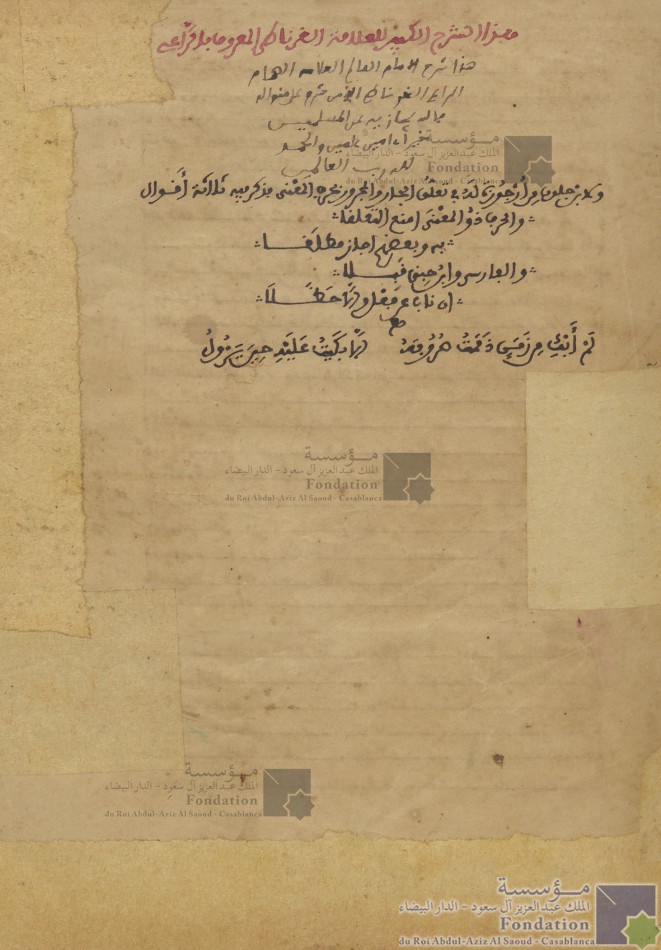 هذا الشرح الكبير للعلامة الغرناطي المعروف بالراعي
هذا شرح الامام العالم العلامه الهمام
الراعي الغرناطي
عن المسلمين
خيرا امين امين والحمد
لله رب العالمين
ولابن من ارجوزة له في تعلق الجار والمجرور بحرف المعنى يذكر فيه ثلاثة أقوال
والحرف ذو المعنى امنع التعلقا
به وبعضهم اجاز مطلقا
والفارسي وابن جني فصلا
ان ناب عن فعل والا حظلا
لم أبك من زمن ذممت صروفه الا بكيت عليه حين يزول
مؤسسة
الملك عبد العزيز آل سعود - الدار البيضاء
Fondation
du Roi Abdul-Aziz Al Saoud - Casablanca
مؤسسة
الملك عبد العزيز آل سعود - الدار البيضاء
Fondation
du Roi Abdul-Aziz Al Saoud - Casablanca
مؤسسة
الملك عبد العزيز آل سعود - الدار البيضاء
Fondation
du Roi Abdul-Aziz Al Saoud - Casablanca
مؤسسة
الملك عبد العزيز آل سعود - الدار البيضاء
Fondation
du Roi Abdul-Aziz Al Saoud - Casablanca